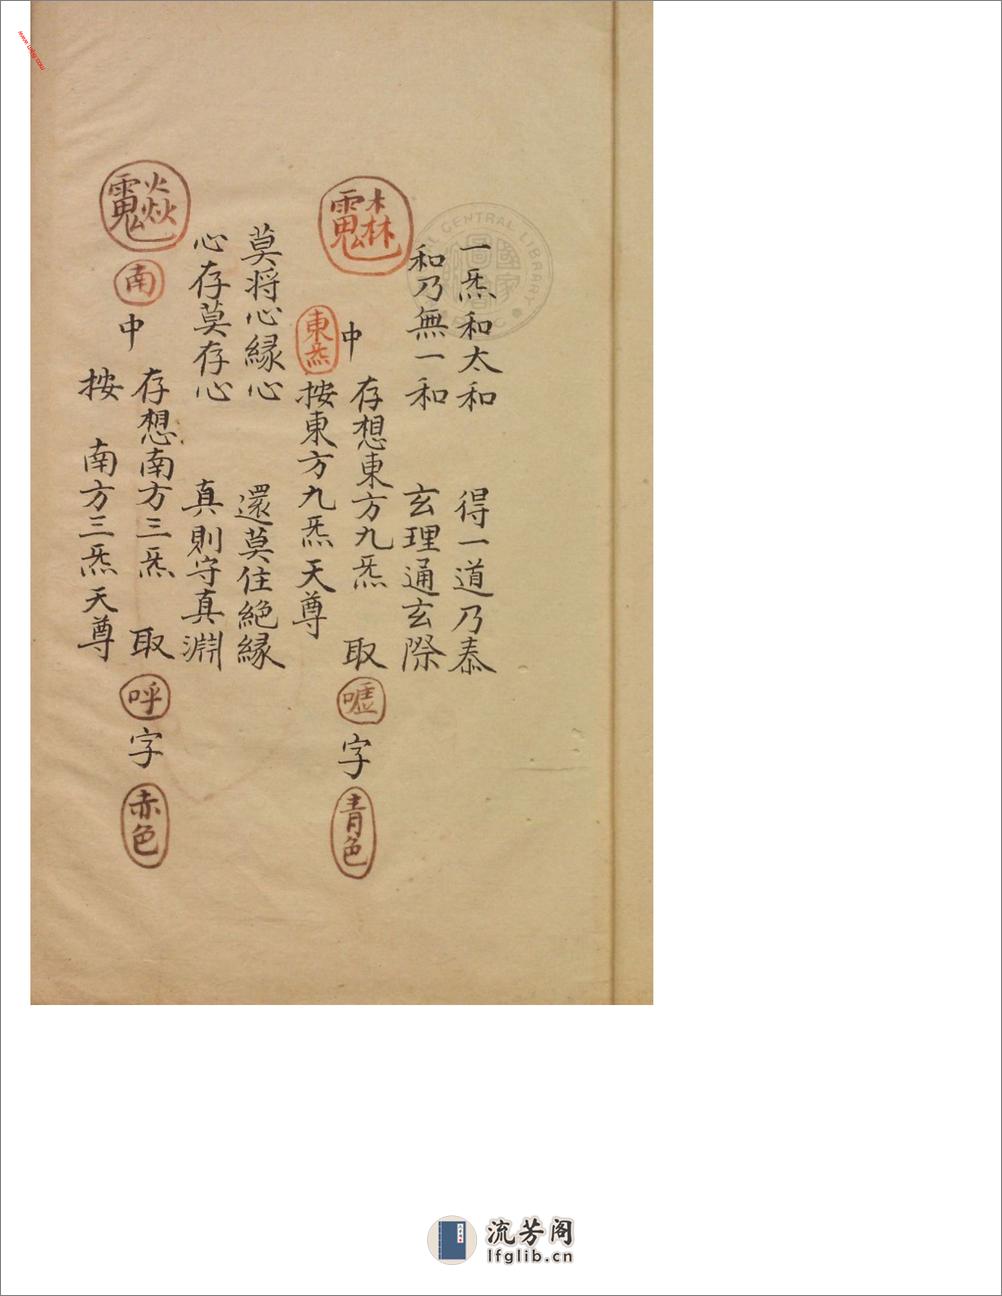 一炁和太和　得一道乃泰
和乃無一和　玄理通玄際
中　存想東方九炁　取嘘字青色
東炁　按東方九炁天尊
莫将心縁心　還莫住絶縁
心存莫存心　真則守真淵
南　中　存想南方三炁　取呼字赤色
按　南方三炁天尊
CENTRAL LIBRARY
流芳阁
lfglib.cn